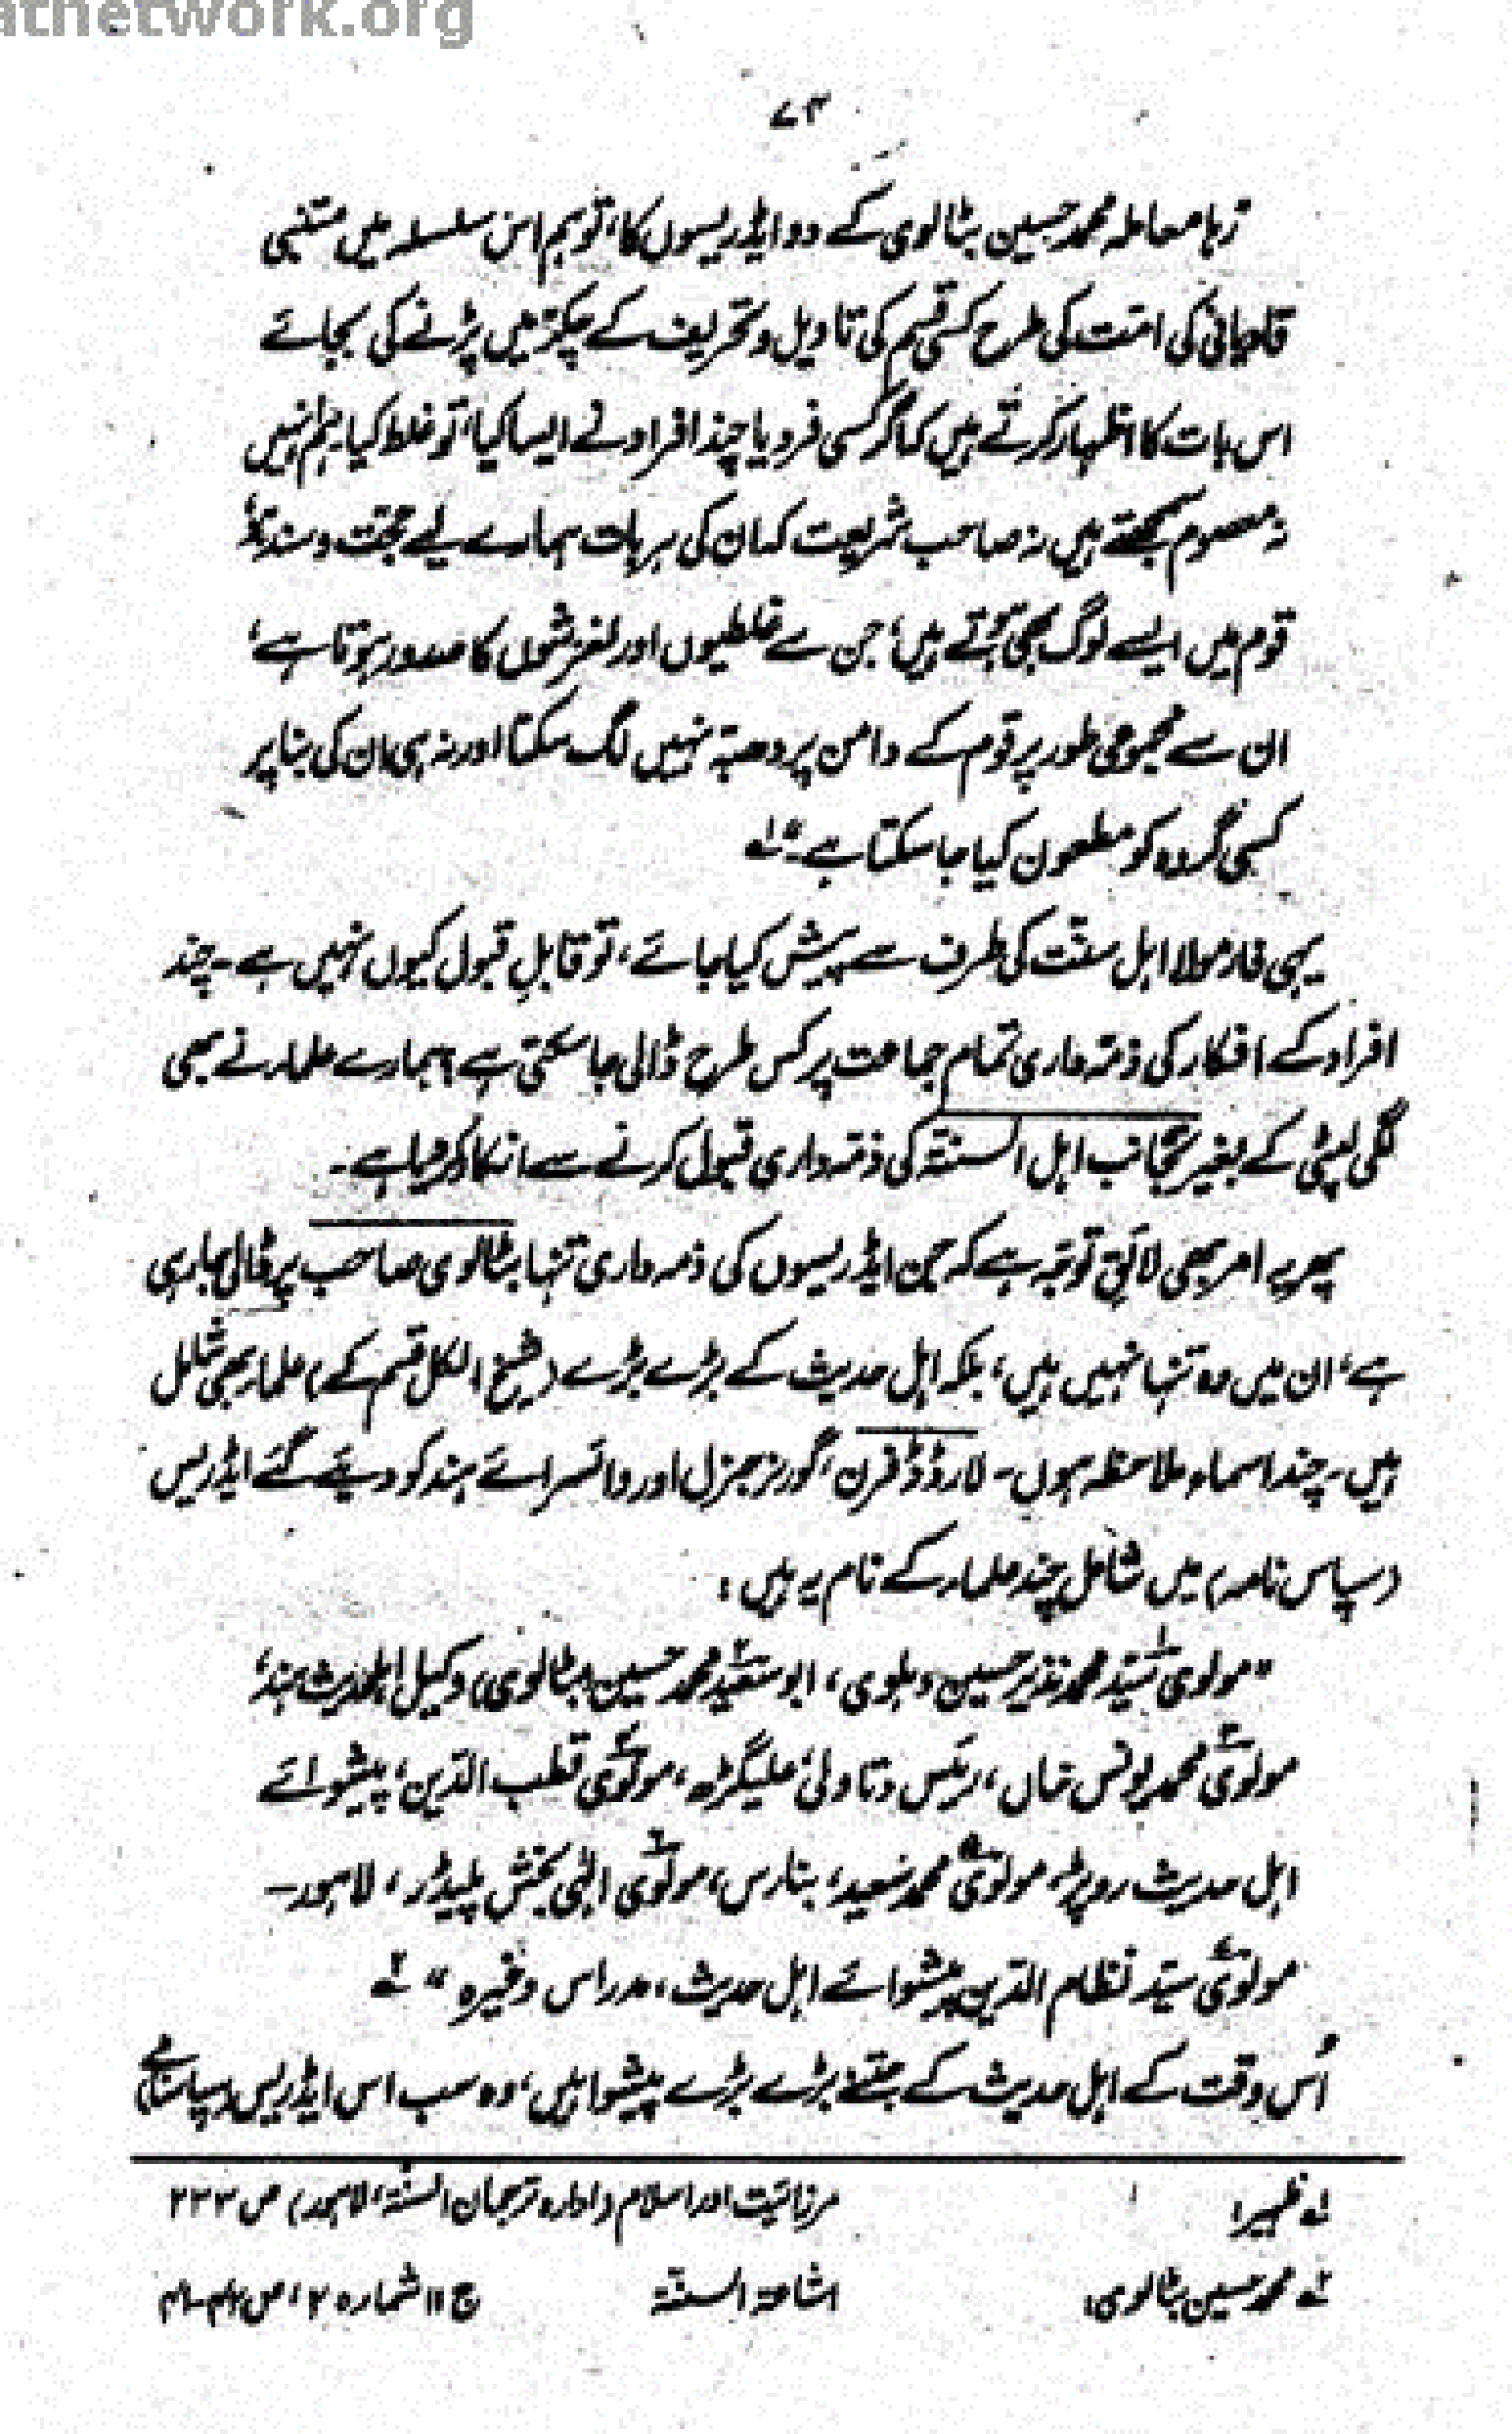 atnetwork.org
۷۳
رہا معاملہ محمد حسین بٹالوی کے دو ایڈریسوں کا، تو ہم اس سلسلہ میں متنبی
قادیانی کی امت کی طرح کسی قسم کی تاویل و تحریف کے چکّر میں پڑنے کی بجائے
اس بات کا اظہار کرتے ہیں کہ اگر کسی فرد یا چند افراد نے ایسا کیا، تو غلط کیا ہم انہیں
نہ معصوم سمجھتے ہیں نہ صاحب شریعت کہ ان کی ہر بات ہمارے لیے حجّت و سند ہو۔
قوم میں ایسے لوگ بھی ہوتے ہیں، جن سے غلطیوں اور لغزشوں کا صدور ہوتا ہے،
ان سے مجموعی طور پر قوم کے دامن پر دھبّہ نہیں لگ سکتا اور نہ ہی ان کی بنا پر
کسی گروہ کو مطعون کیا جا سکتا ہے۔" ۱ے
یہی فارمولا اہل سنّت کی طرف سے پیش کیا جائے، تو قابلِ قبول کیوں نہیں ہے۔ چند
افراد کے افکار کی ذمّہ داری تمام جماعت پر کس طرح ڈالی جا سکتی ہے؟ ہمارے علماء نے بھی
لگی لپٹی کے بغیر تجانب اہل السنّۃ کی ذمّہ داری قبول کرنے سے انکار کر دیا ہے۔
پھر یہ امر بھی لائقِ توجّہ ہے کہ جن ایڈریسوں کی ذمہ داری تنہا بٹالوی صاحب پر ڈالی جا رہی
ہے، ان میں وہ تنہا نہیں ہیں، بلکہ اہل حدیث کے بڑے بڑے (شیخ الکل قسم کے) علماء بھی شامل
ہیں۔ چند اسماء ملاحظہ ہوں۔ لارڈ ڈفرن، گورنر جنرل اور وائسرائے ہند کو دیئے گئے ایڈریس
(سپاس نامہ) میں شامل چند علماء کے نام یہ ہیں:
"مولوی ۱ سیّد محمد نذیر حسین دہلوی، ابو سعید ۲ محمد حسین (بٹالوی) وکیل اہلحدیث ہند،
مولوی ۳ محمد یونس خاں، رئیس دتاولی، علیگڑھ، مولوی ۴ قطب الدّین، پیشوائے
اہل حدیث روپڑ، مولوی ۵ محمد سعید، بنارس، مولوی ۶ الٰہی بخش پلیڈر، لاہور۔
مولوی ۷ سیّد نظام الدّین پیشوائے اہل حدیث، مدراس وغیرہ" ۲ے
اُس وقت کے اہل حدیث کے جتنے بڑے بڑے پیشوا ہیں، وہ سب اس ایڈریس (سپاسنامے)
۱ے ظہیر: مرزائیت اور اسلام (ادارہ ترجمان السنّۃ، لاہور) ص ۲۳۳
۲ے محمد حسین بٹالوی: اشاعۃ السنّۃ ج ۱۱ شمارہ ۲، ص